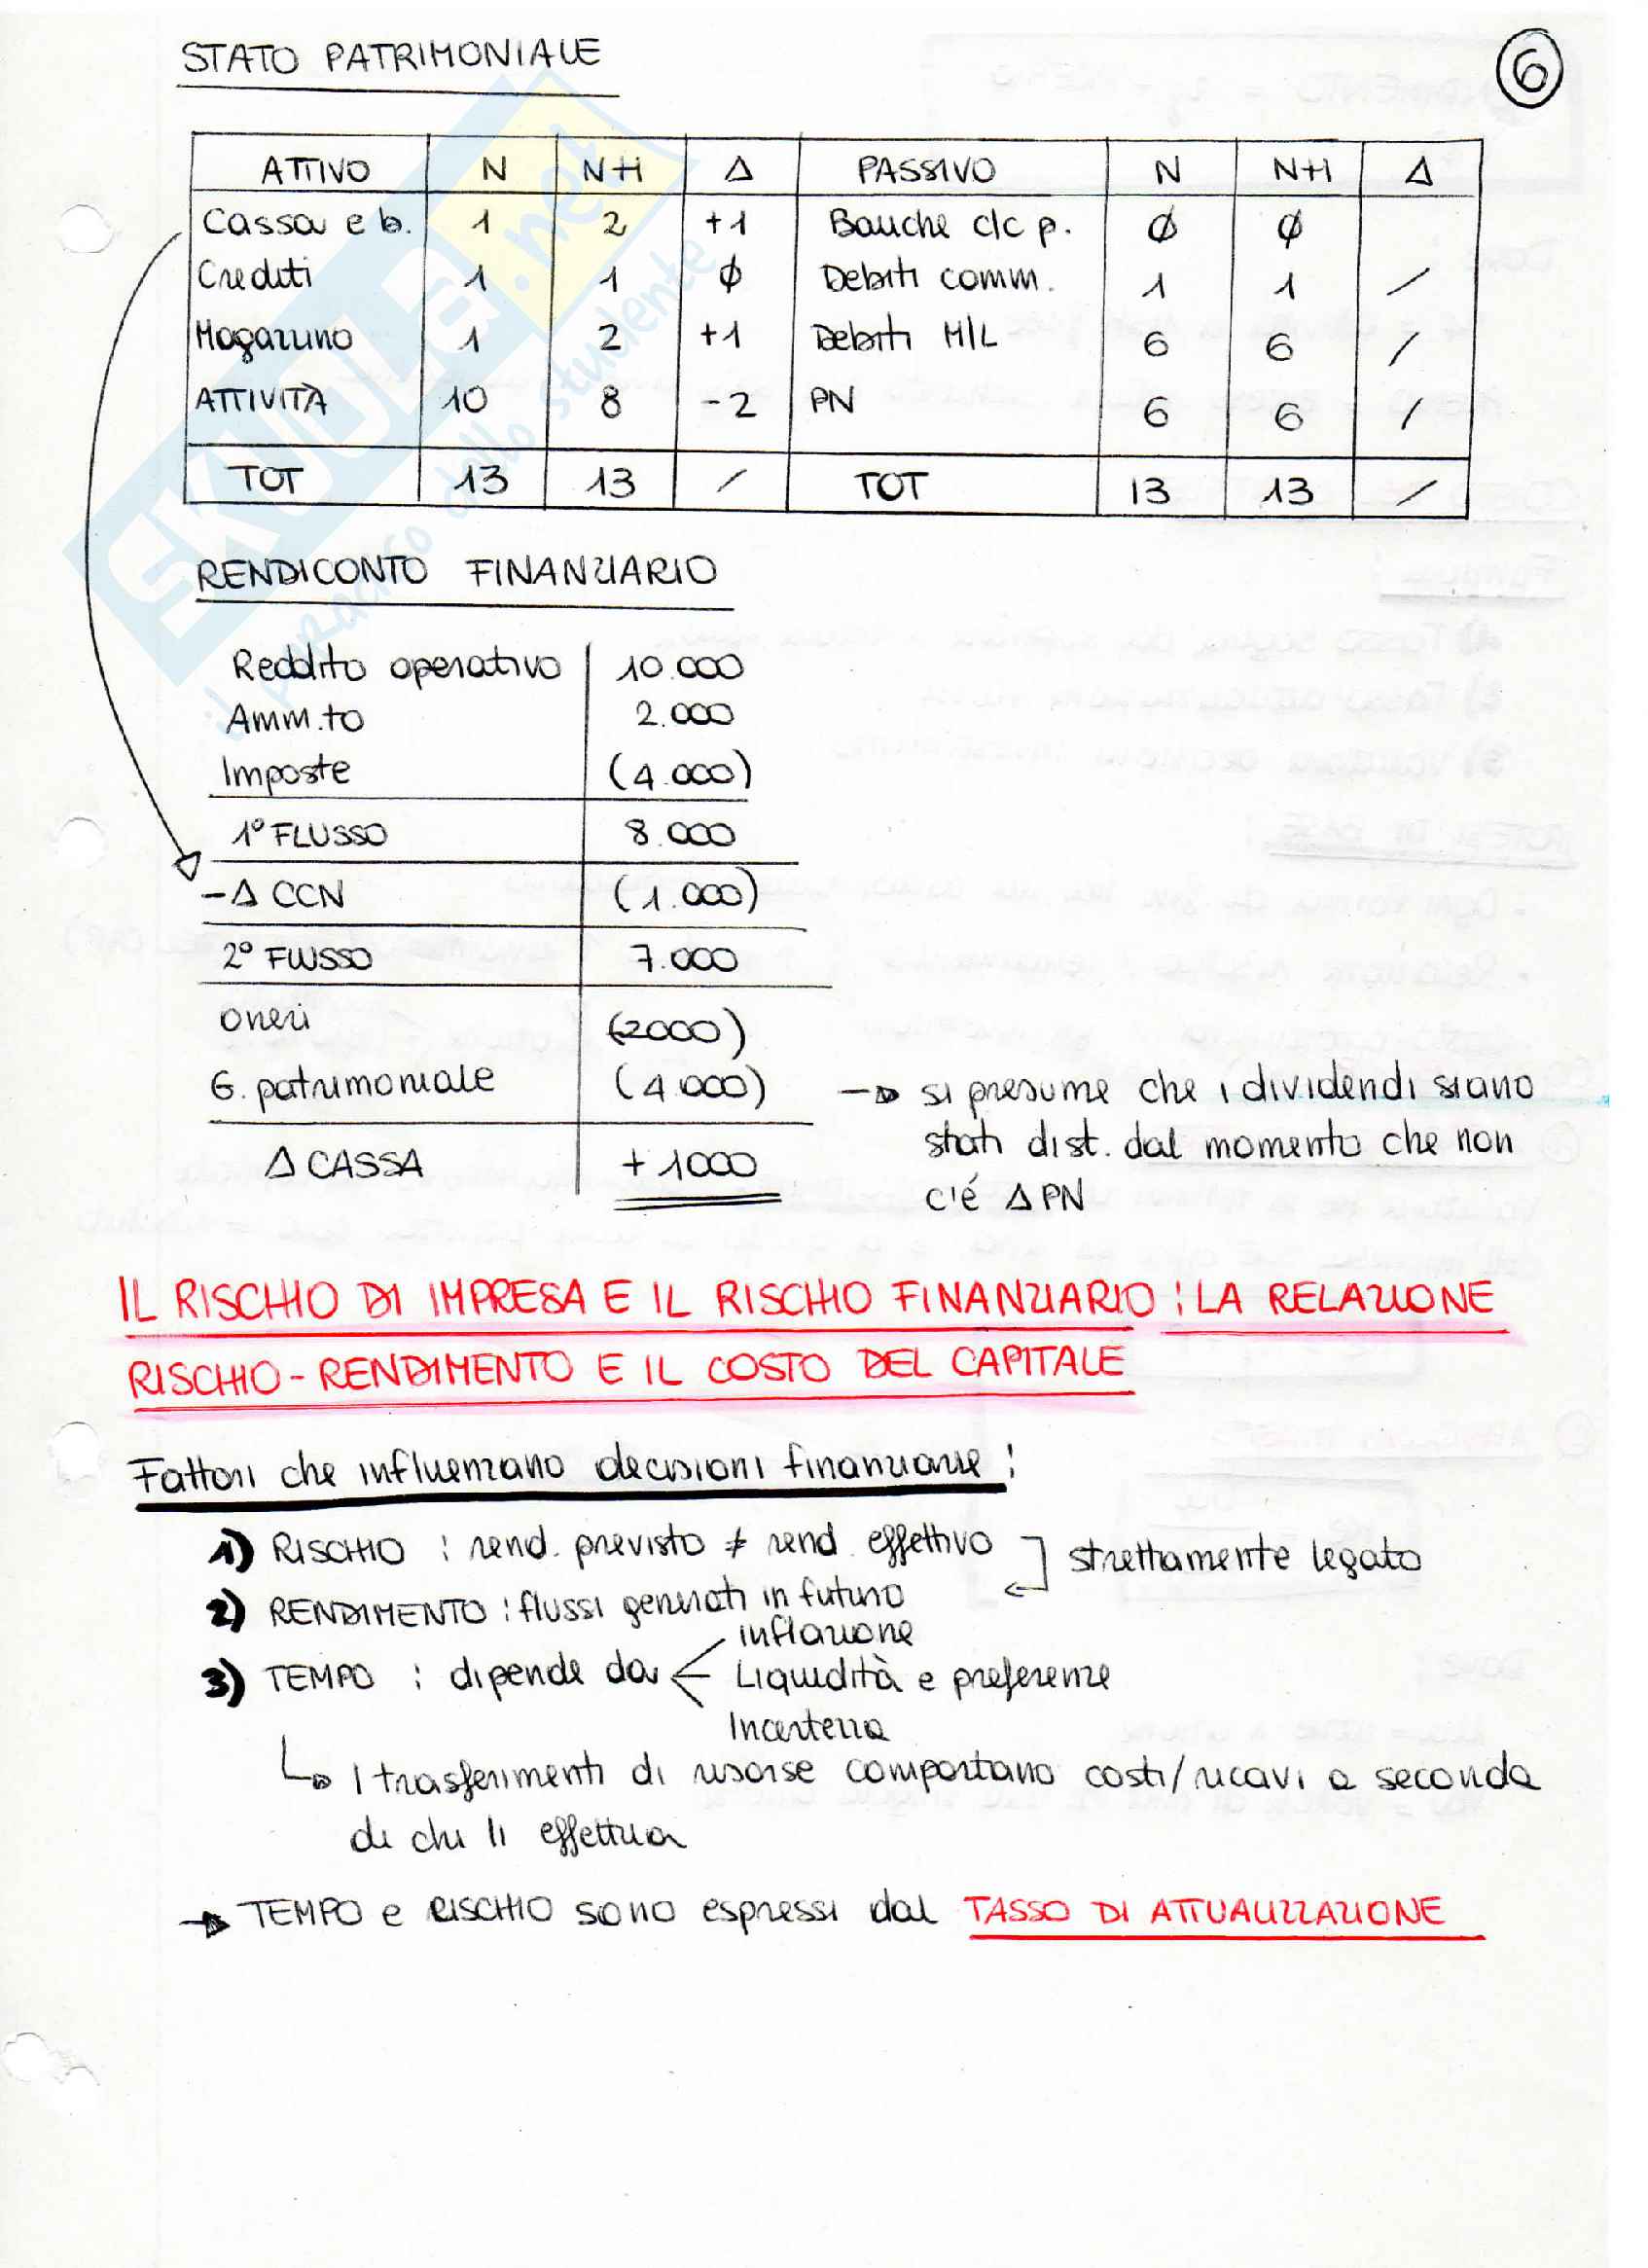 STATO PATRIMONIALE
6
ATTIVO N N+1 Δ PASSIVO N N+1 Δ
Cassa e b. 1 2 +1 Banche c/c p. Ø Ø
Crediti 1 1 Ø Debiti comm. 1 1 /
Magazzino 1 2 +1 Debiti M/L 6 6 /
ATTIVITÀ 10 8 -2 PN 6 6 /
TOT 13 13 / TOT 13 13 /
RENDICONTO FINANZIARIO
Reddito operativo 10.000
Amm.to 2.000
Imposte (4.000)
1° FLUSSO 8.000
-Δ CCN (1.000)
2° FLUSSO 7.000
oneri (2000)
G. patrimoniale (4.000) → si presume che i dividendi siano
stati dist. dal momento che non
c'é Δ PN
Δ CASSA +1000
IL RISCHIO DI IMPRESA E IL RISCHIO FINANZIARIO : LA RELAZIONE
RISCHIO - RENDIMENTO E IL COSTO DEL CAPITALE
Fattori che influenzano decisioni finanziarie :
1) RISCHIO : rend. previsto ≠ rend. effettivo
strettamente legato
2) RENDIMENTO : flussi generati in futuro
3) TEMPO : dipende da
inflazione
Liquidità e preferenze
Incertezza
I trasferimenti di risorse comportano costi/ricavi a seconda
di chi li effettua
→ TEMPO e RISCHIO sono espressi dal TASSO DI ATTUALIZZAZIONE
SKUOLA.net
il paradiso dello studente